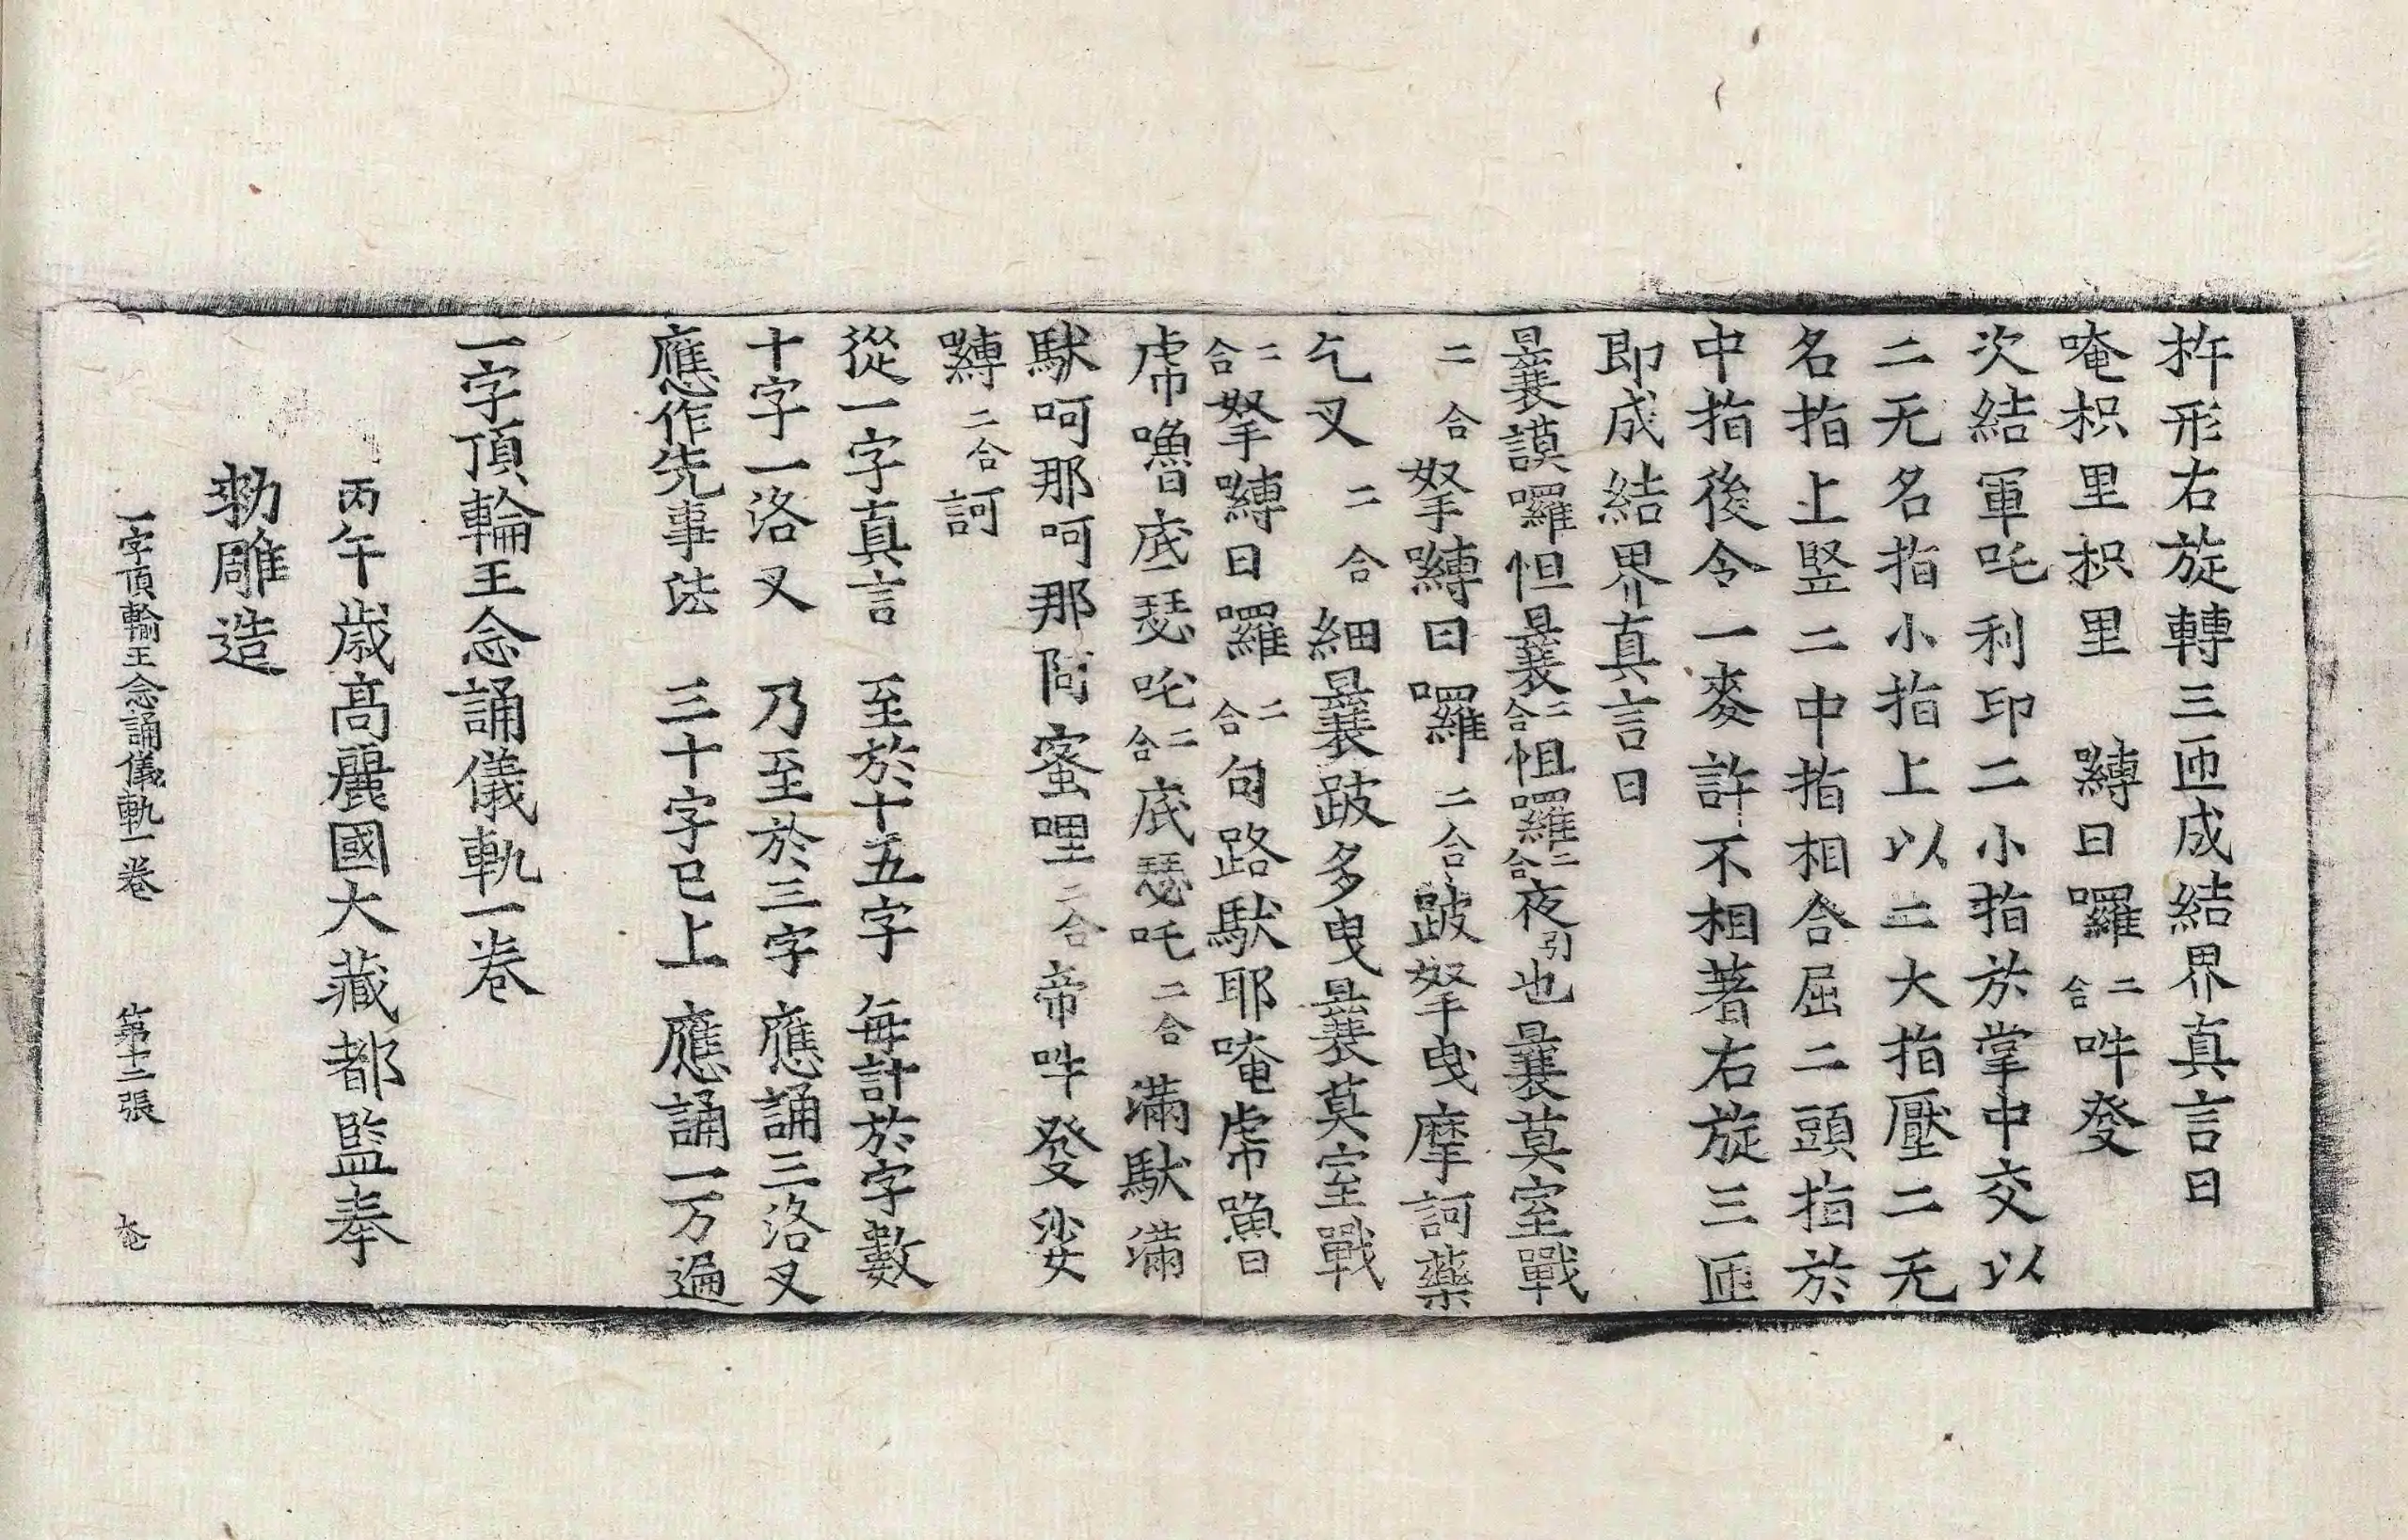 杵形右旋轉三匝成結界真言曰
唵枳里枳里嚩日囉二合吽發
次結軍吒利印二小指於掌中交以
二无名指小指上以二大指壓二无
名指上竪二中指相合屈二頭指於
中指後令一麥許不相著右旋三匝
即成結界真言曰
曩謨囉怛曩二合怛囉二合夜引也曩莫室戰
二合拏嚩日囉二合跛拏曳摩訶藥
乞叉二合細曩跛多曳曩莫室戰
二合拏嚩日囉二合句路馱耶唵虎嚕
虎嚕底瑟吒二合底瑟吒二合滿馱滿
馱呵那呵那阿蜜哩二合帝吽發娑
嚩二合訶
從一字真言至於十五字每計於字數
十字一洛叉乃至於三字應誦三洛叉
應作先事法三十字已上應誦一万遍
一字頂輪王念誦儀軌一卷
丙午歲高麗國大藏都監奉
勑雕造
一字頂輪王念誦儀軌一卷 第十二張